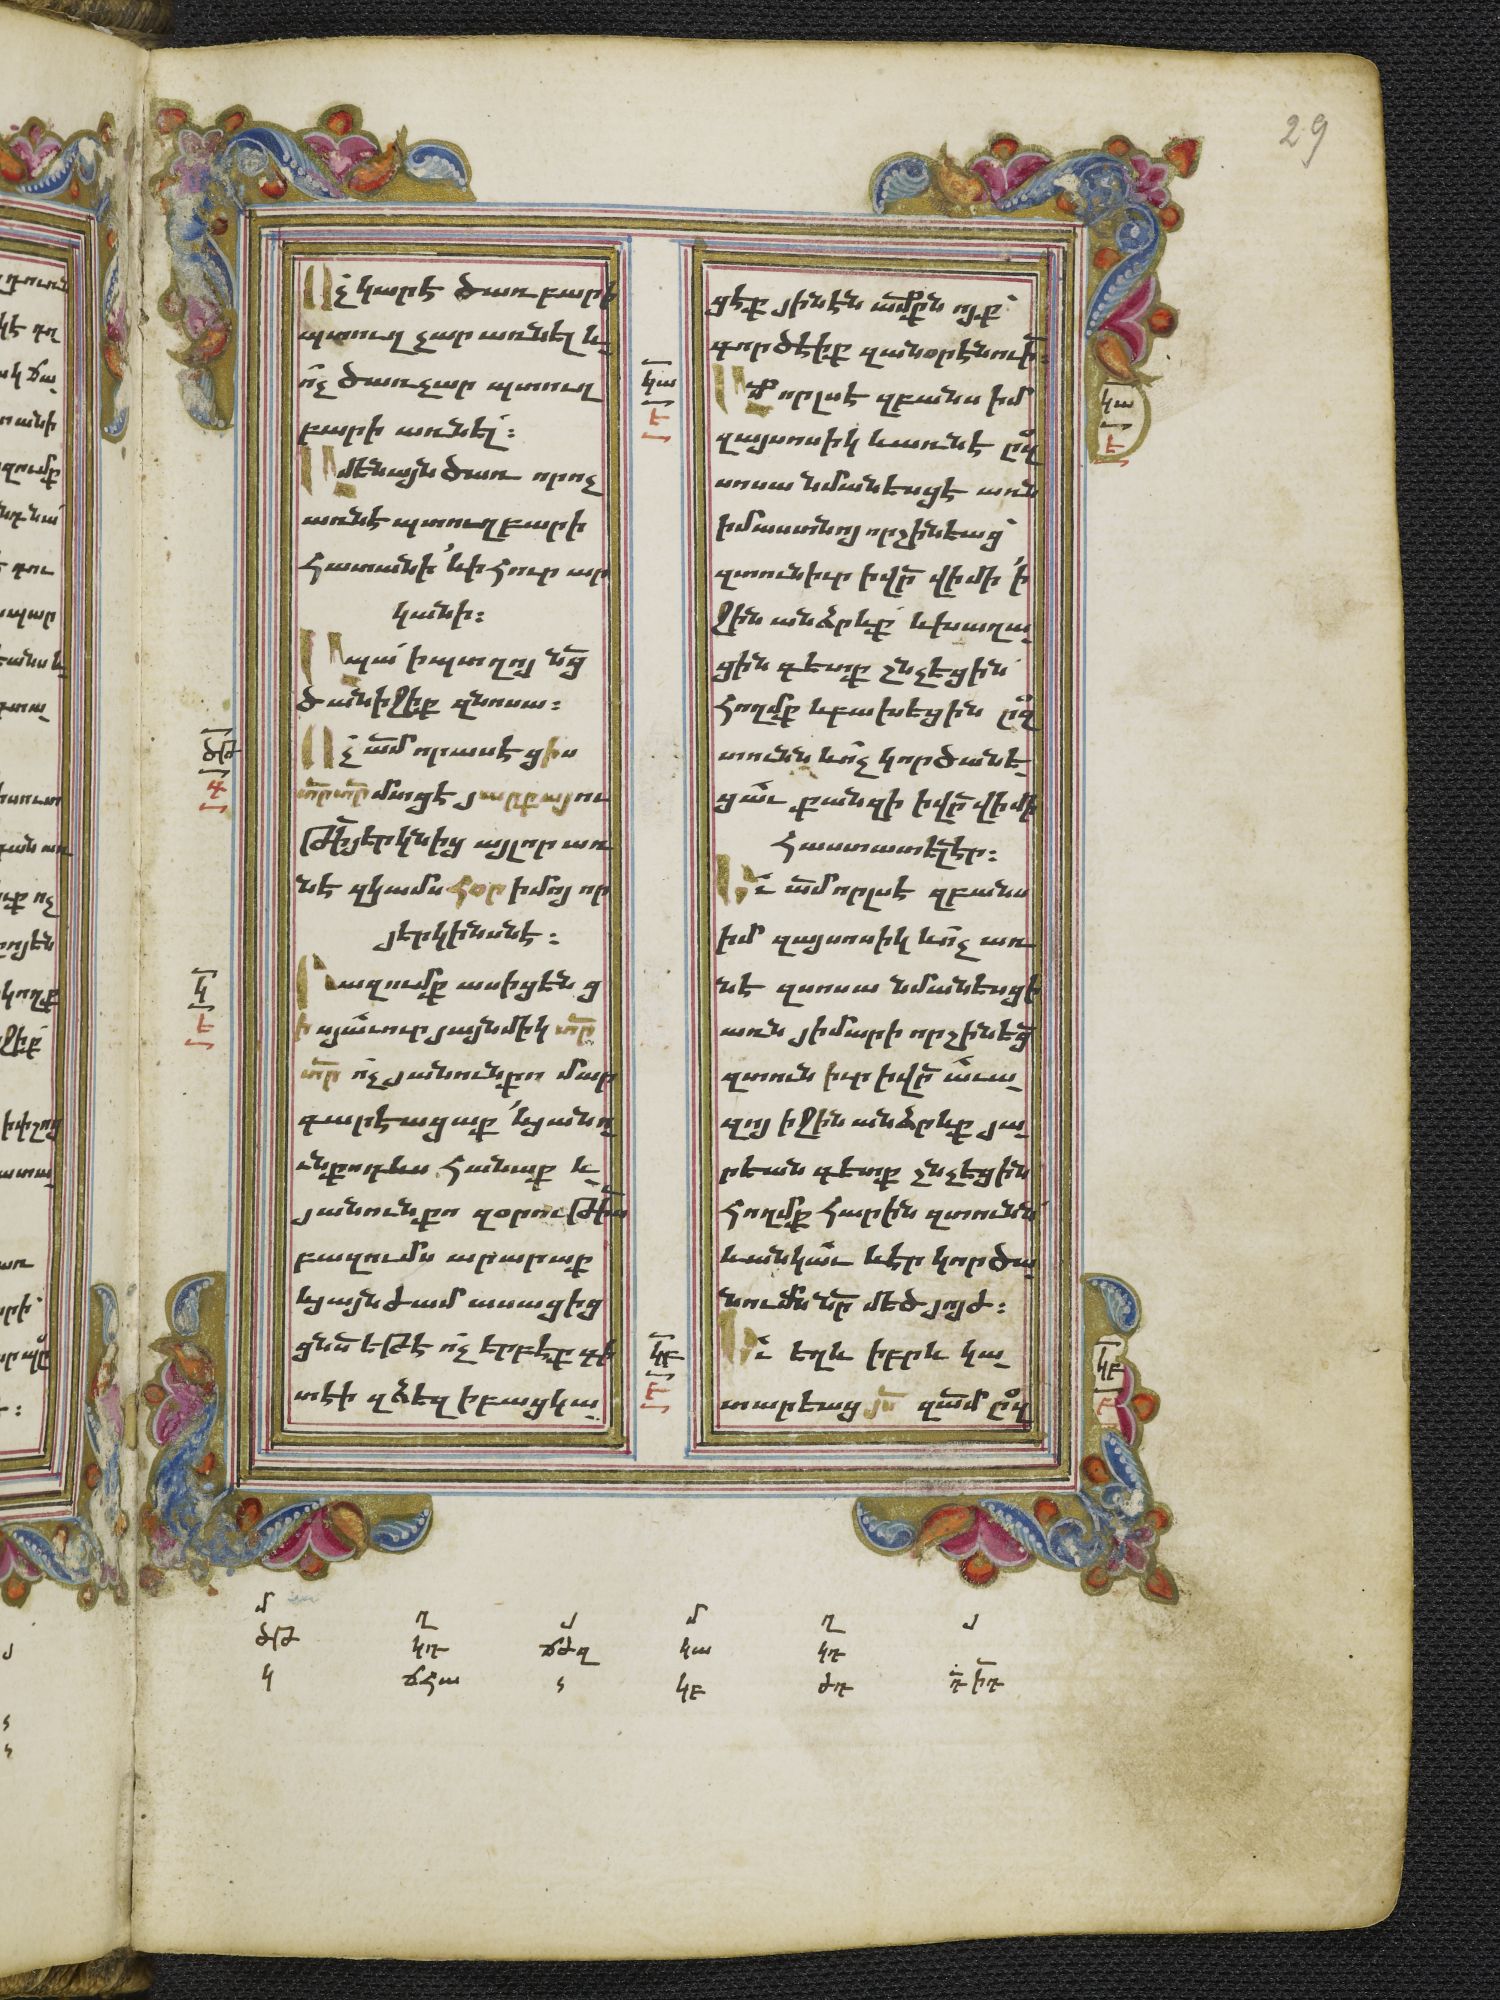 29
Ոչ կարէ ծառ բարի
պտուղ չար առնել և
ոչ ծառ չար պտուղ
բարի առնել։
Ամենայն ծառ որ ոչ
առնէ պտուղ բարի
հատանի՛ և ի հուր ար
կանի։
Ապա՛ ի պտղոյ նց
ծանիջիք զնոսա։
Ոչ ամ որ ասէ ցիս
տր տր մտցէ յարքայու
թի երկնից այլ որ առ
նէ զկամս հօր իմոյ որ
յերկինսնէ։
Բազումք ասիցեն ց
իս յաւուր յայնմիկ տր
տր ոչ յանուն քո մար
գարէացաք՛ և յանու
ն քո դևս հանաք և
յանուն քո զօրութիս
բազումս արարաք
և յայնժամ ասացից
ցնս եթէ ոչ երբեք գի
տէի զձեզ ի բաց կա
ցէք յինէն ամքն ոյք
գործէիք զանօրէնուի։
Ամ որ լսէ զբանս իմ
զայսոսիկ և առնէ ըզ
սոսա նմանեսցէ առն
իմաստնոյ որ շինեաց
զտուն իւր ի վր վիմի՛ ի
ջին անձրևք և խաղա
ցին գետք շնչեցին
հողմք և բախեցին ըզ
տունն և ոչ կործանե
ցաւ քանզի ի վր վիմի
հաստատել էր։
Եւ ամ որ լսէ զբանս
իմ զայսոսիկ և ոչ առ
նէ զսոսա նմանեսցի
առն յիմարի որ շինեց
զտուն իւր ի վր աւա
զոյ իջին անձրևք յա
րեան գետք շնչեցին
հողմք հարին զտունն
և անկաւ և էր կործա
նումն նր մեծ յոյժ։
Եւ եղև իբրև կա
տարեաց յս զամ ըզ
ծթ
զ
կ
է
կա
է
կբ
բ
կա
է
կբ
բ
մ ղ յ մ ղ յ
ծթ կդ ճժզ կա կդ
կ ճհա կբ ժդ